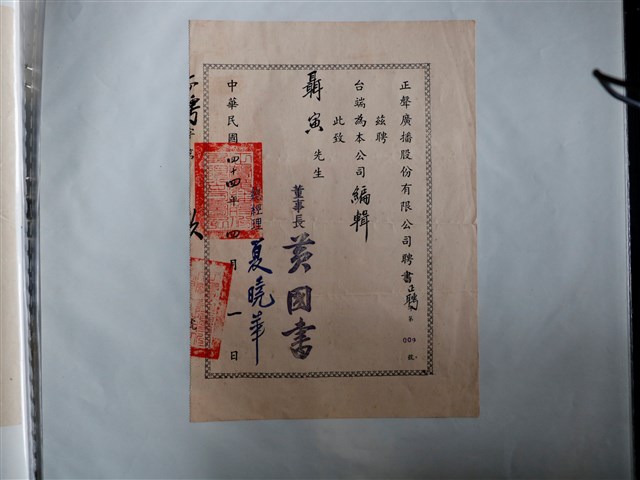 正聲廣播股份有限公司聘書正聘第009號
茲聘
台端為本公司編輯
此致
聶寅先生
董事長 黃國書
總經理 夏曉華
中華民國四十四年四月一日